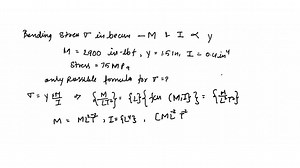 Bending Stress σ in beam – M & I ∝ y
M = 2900 in·lbf, y = 1.5 in, I = 0.4 in⁴
Stress = 75 MPa
only possible formula for σ = ?
σ = y M/I ⇒ {M/LT²} = {L}{fcn (M,I)} = {M/L T²}
M = ML²T⁻², I = {L⁴},